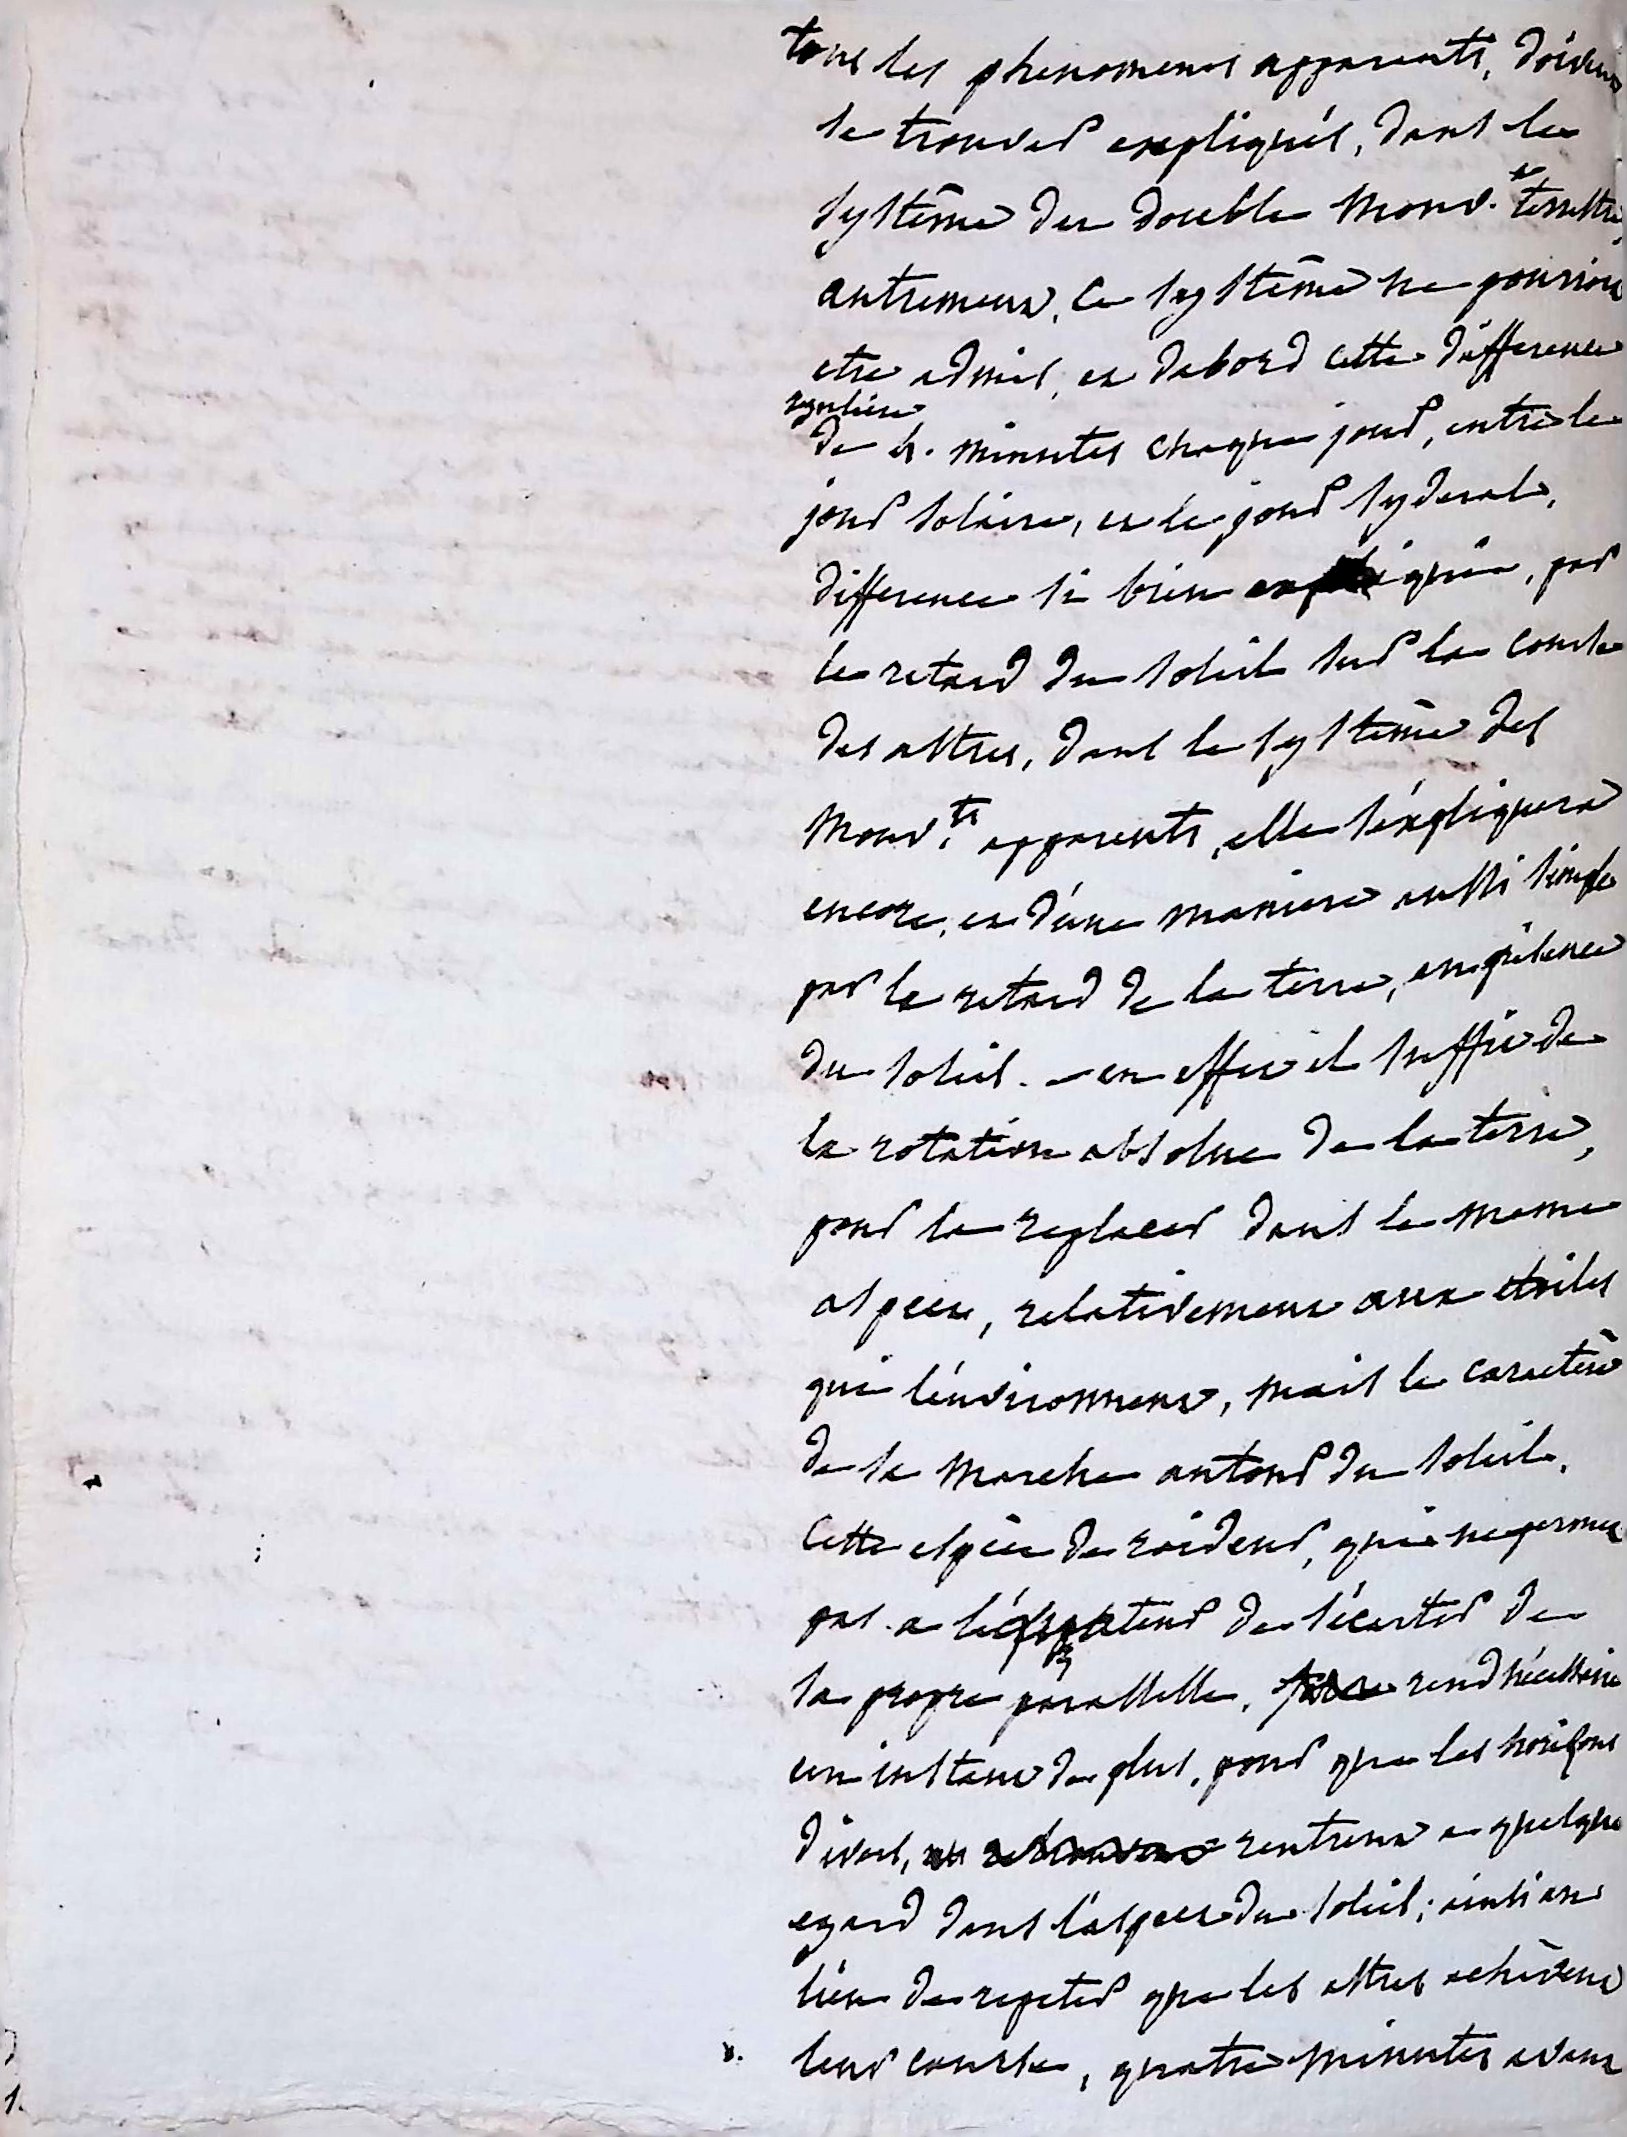 tous les phenomenes apparents, doivent
se trouver expliqués, dans le
systême du double mouv.t terrestre,
autrement, ce systême ne pourrait
etre admis, et dabord cette difference
reguliere
de 4. minutes chaque jour, entre le
jour solaire, et le jour syderal,
difference si bien expliquée, par
le retard du soleil sur la course
des astres, dans le systême des
mouv.ts apparents, elle s'éxpliquera
encore, et d'une maniere aussi simple
par le retard de la terre, en présence
du soleil. - en effet il suffit de
la rotation absolue de la terre,
pour la replacer dans le meme
aspect, relativement aux etoiles
qui l'énvironnent, mais le caractère
de sa marche autour du soleil,
cette espèce de roideur, qui ne permet
pas a l'équateur de s'écarter de
sa propre parallelle, rend nécessaire
un instant de plus, pour que les horisons
divers, rentrent a quelque
egard dans l'aspect du soleil; ainsi au
lieu de repeter que les astres achèvent
leur course, quatre minutes avant